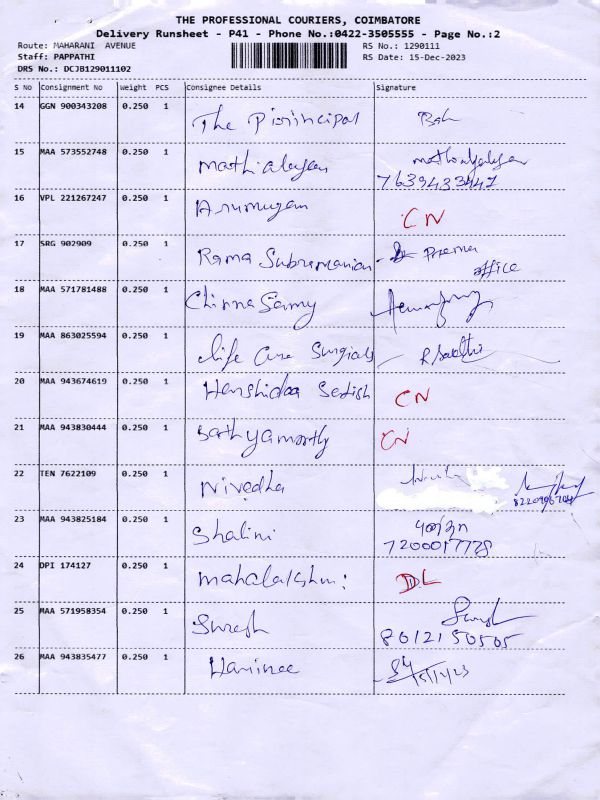 THE PROFESSIONAL COURIERS, COIMBATORE
Delivery Runsheet - P41 - Phone No.:0422-3505555 - Page No.:2
Route: MAHARANI AVENUE RS No.: 1290111
Staff: PAPPATHI RS Date: 15-Dec-2023
DRS No.: DCJB129011102
S No Consignment No Weight PCS Consignee Details Signature
14 GGN 900343208 0.250 1 The Pirincipal
15 MAA 573552748 0.250 1 mathialagan
7639433441
16 VPL 221267247 0.250 1 Arumugam CN
17 SRG 902909 0.250 1 Rama Subramanian Prema
office
18 MAA 571781488 0.250 1 Chinna Samy
19 MAA 863025594 0.250 1 Life Care Surgicals R Sakthi
20 MAA 943674619 0.250 1 CN
21 MAA 943830444 0.250 1 Sathyamoorthy CN
22 TEN 7622109 0.250 1 Nivedha
23 MAA 943825184 0.250 1 Shalini
7200017778
24 DPI 174127 0.250 1 Mahalakshmi DL
25 MAA 571958354 0.250 1 Suresh
8012150505
26 MAA 943835477 0.250 1 Harinee 15/12/23